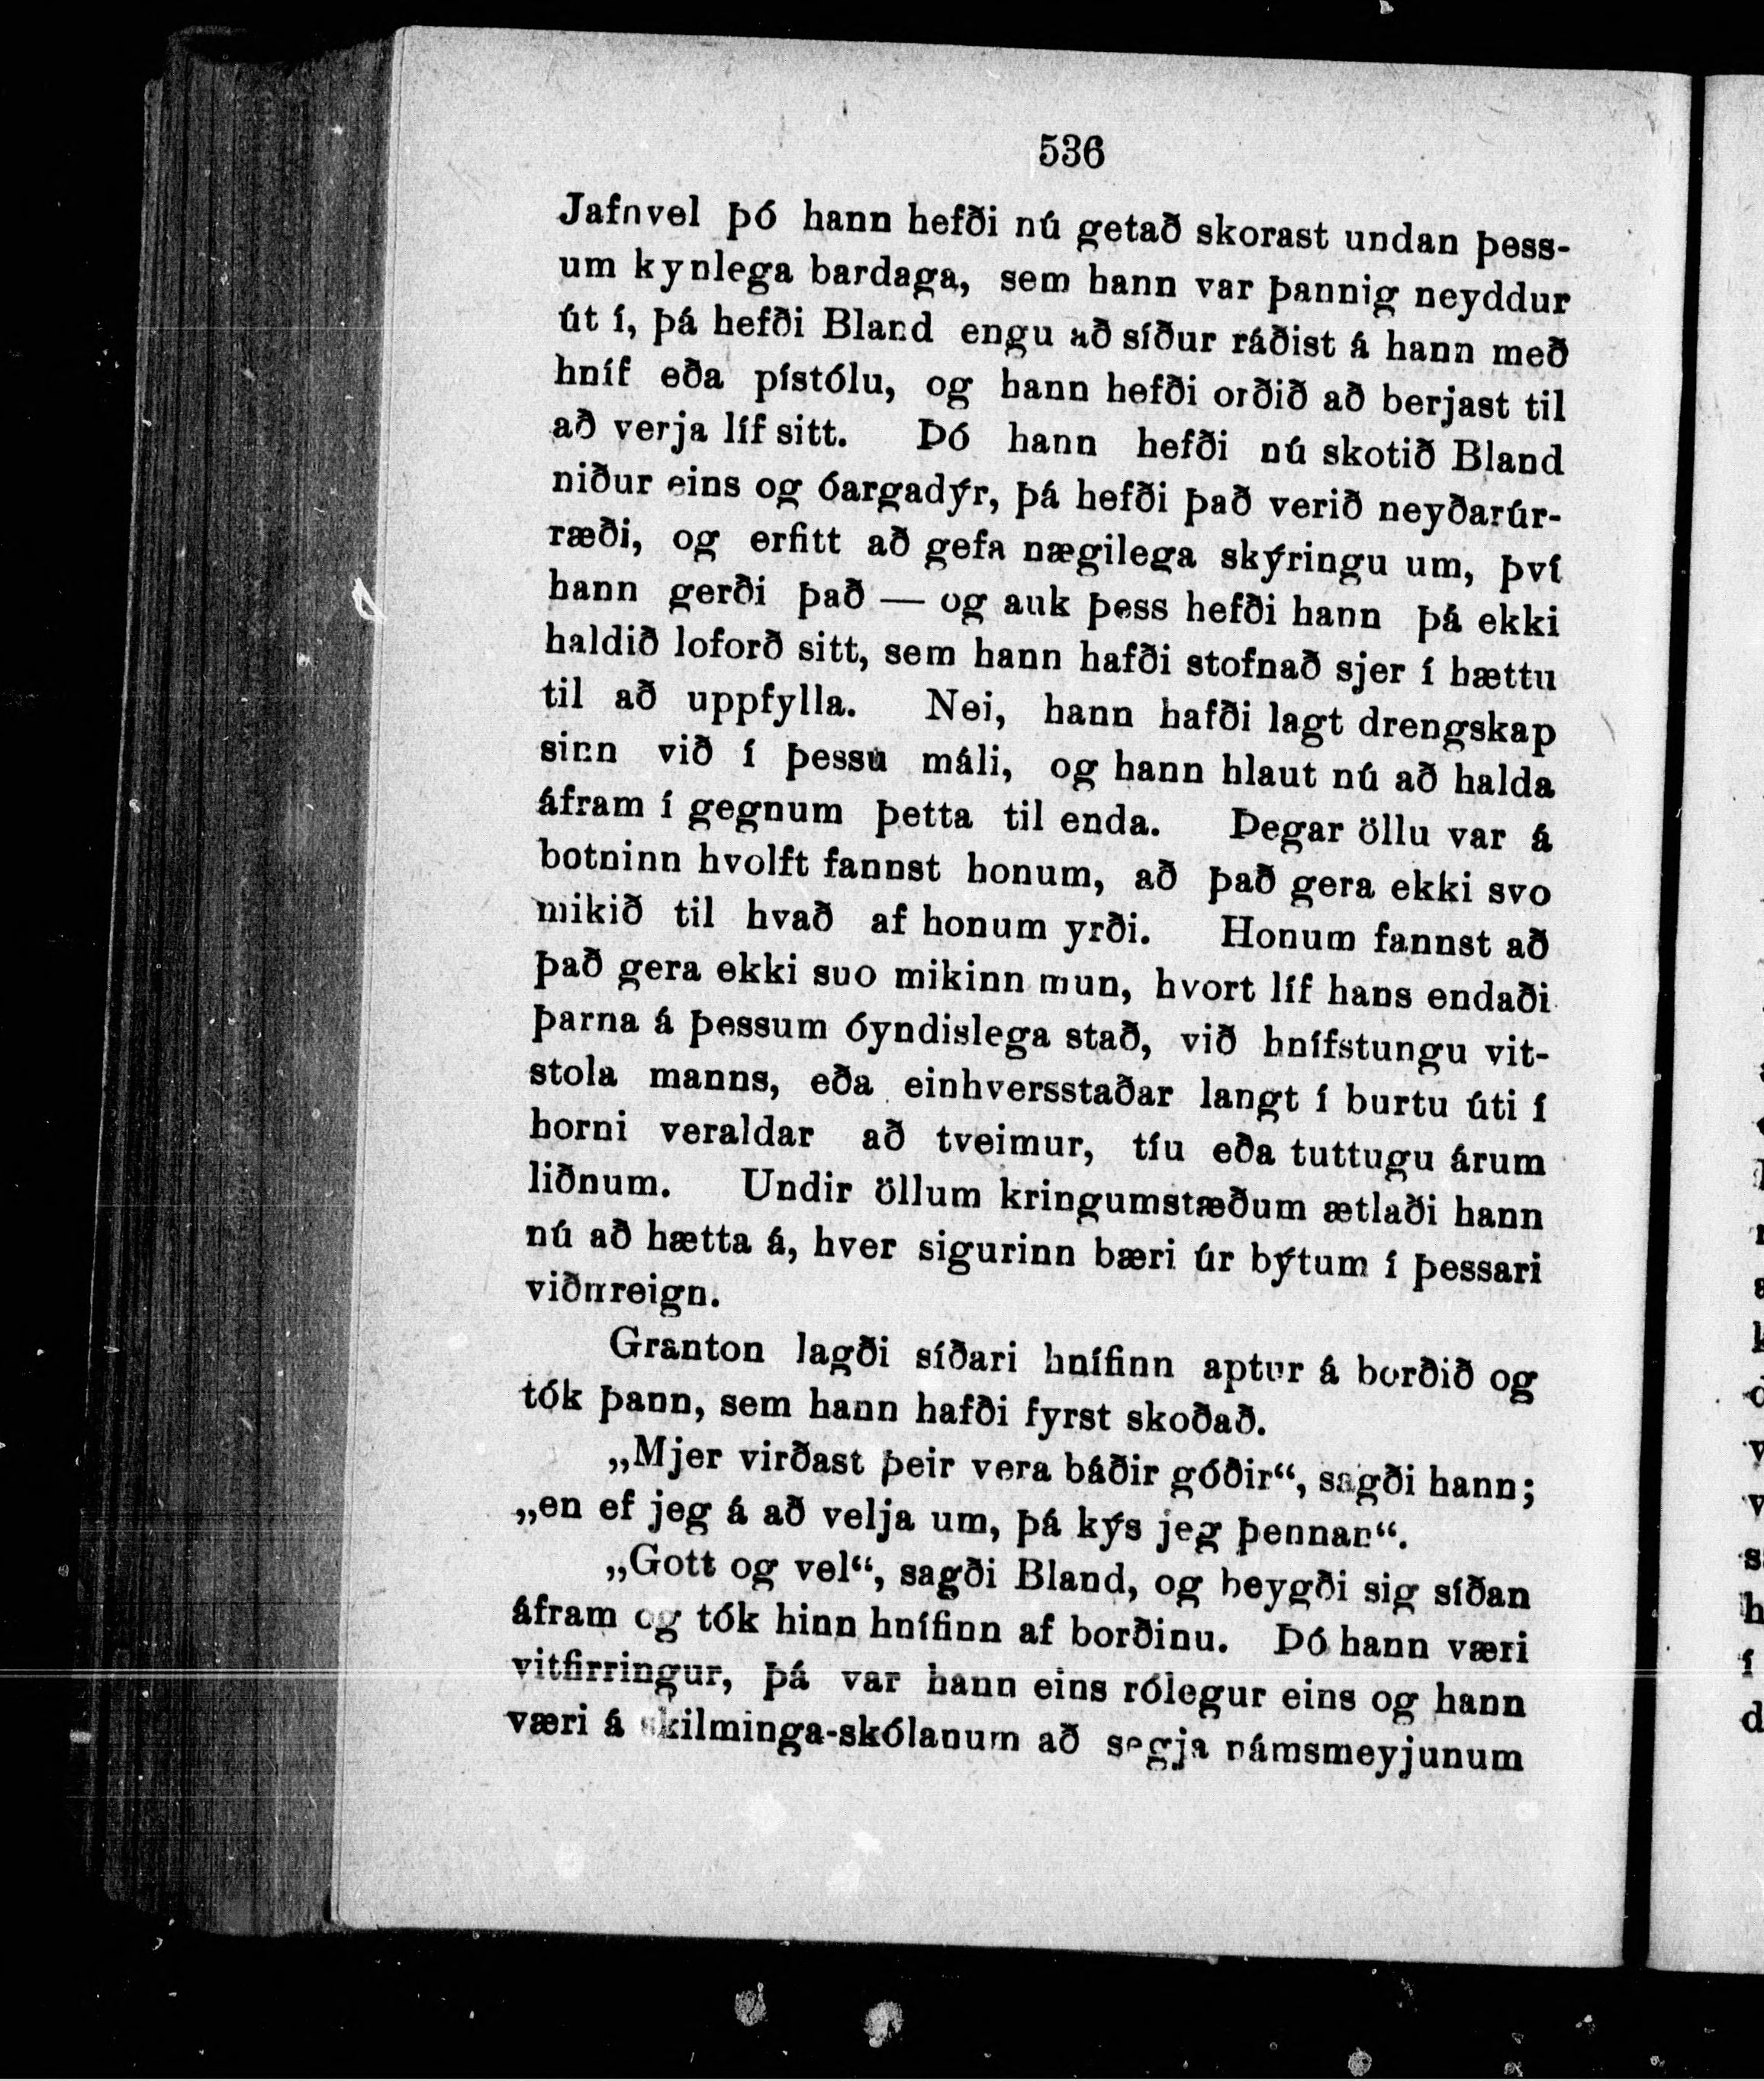 536
Jafnvel þó hann hefði nú getað skorast undan þess-
um kynlega bardaga, sem hann var þannig neyddur
út í, þá hefði Bland engu að síður ráðist á hann með
hníf eða pístólu, og hann hefði orðið að berjast til
að verja líf sitt. Þó hann hefði nú skotið Bland
niður eins og óargadýr, þá hefði það verið neyðarúr-
ræði, og erfitt að gefa nægilega skýringu um, því
hann gerði það — og auk þess hefði hann þá ekki
haldið loforð sitt, sem hann hafði stofnað sjer í hættu
til að uppfylla. Nei, hann hafði lagt drengskap
sinn við í þessu máli, og hann hlaut nú að halda
áfram í gegnum þetta til enda. Þegar öllu var á
botninn hvolft fannst honum, að það gera ekki svo
mikið til hvað af honum yrði. Honum fannst að
það gera ekki suo mikinn mun, hvort líf hans endaði
þarna á þessum óyndislega stað, við hnífstungu vit-
stola manns, eða einhversstaðar langt í burtu úti í
horni veraldar að tveimur, tíu eða tuttugu árum
liðnum. Undir öllum kringumstæðum ætlaði hann
nú að hætta á, hver sigurinn bæri úr býtum í þessari
viðureign.
Granton lagði síðari hnífinn aptur á borðið og
tók þann, sem hann hafði fyrst skoðað.
„Mjer virðast þeir vera báðir góðir“, sagði hann;
„en ef jeg á að velja um, þá kýs jeg þennan“.
„Gott og vel“, sagði Bland, og beygði sig síðan
áfram og tók hinn hnífinn af borðinu. Þó hann væri
vitfirringur, þá var hann eins rólegur eins og hann
væri á skilminga-skólanum að segja námsmeyjunum